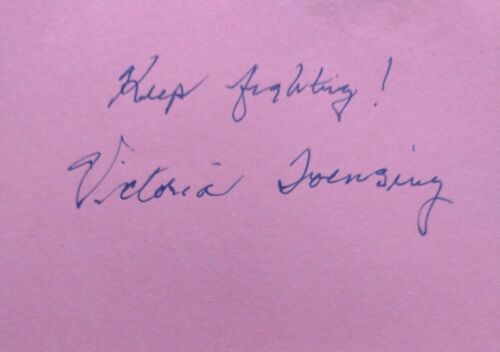 Keep fighting!
Victoria Toensing